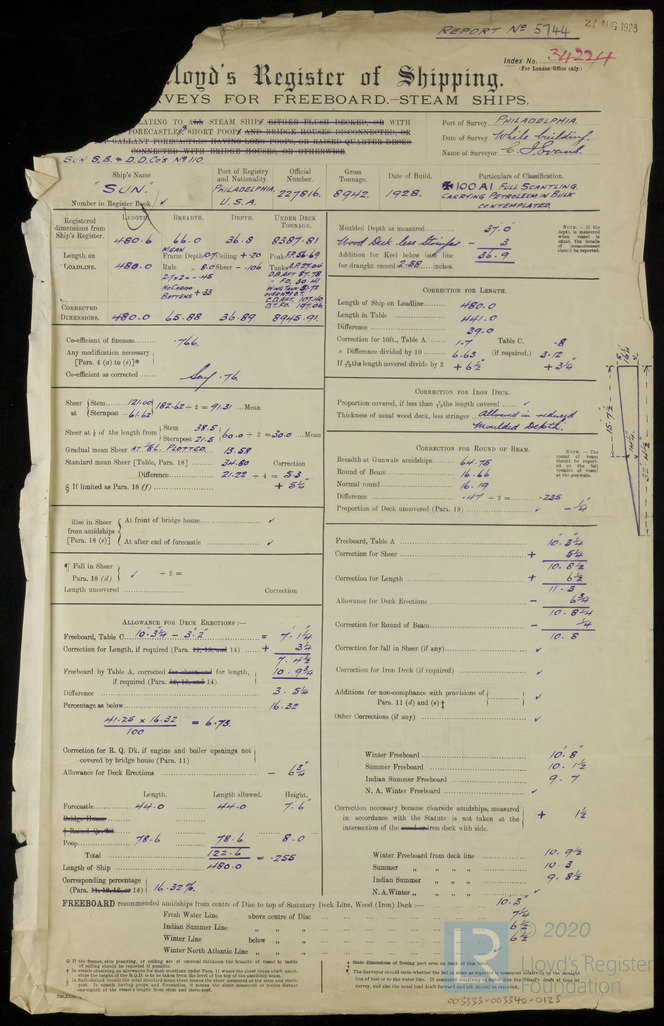 REPORT Nº 5744
27 AUG 1928
Index No. 34224
(For London Office only.)
Lloyd's Register of Shipping.
SURVEYS FOR FREEBOARD.—STEAM SHIPS.
RELATING TO ALL STEAM SHIPS EITHER FLUSH DECKED, OR WITH
FORECASTLES, SHORT POOPS AND BRIDGE HOUSES DISCONNECTED, OR
GALLANT FORECASTLES HAVING LONG POOPS, OR RAISED QUARTER DECKS
CONNECTED WITH BRIDGE HOUSES, OR OTHERWISE
SUN S.B. & D.D. Co's Nº 110.
Port of Survey PHILADELPHIA.
Date of Survey While building.
Name of Surveyor
Ship's Name
"SUN."
Number in Register Book
Port of Registry and Nationality.
PHILADELPHIA, U.S.A.
Official Number.
227816.
Gross Tonnage.
8942.
Date of Build.
1928.
Particulars of Classification.
✠ 100 A1 FULL SCANTLING.
CARRYING PETROLEUM IN BULK
CONTEMPLATED.
Registered dimensions from Ship's Register.
LENGTH. BREADTH. DEPTH. UNDER DECK TONNAGE.
480.6 66.0 36.8 8387.81
Length on LOADLINE. 480.0
CORRECTED DIMENSIONS. 480.0 65.88 36.89 8945.91
Co-efficient of fineness .766
Any modification necessary [Para. 4 (a) to (e)]*
Co-efficient as corrected Say .76
Sheer at Stem 121.00
Sternpost 61.62
182.62 ÷ 2 = 91.31 Mean
Sheer at ⅛ of the length from Stem 38.5
Sternpost 21.5
60.0 ÷ 2 = 30.0 Mean
Gradual mean Sheer AT ⅛L PLOTTED. 13.58
Standard mean Sheer [Table, Para. 18] 34.80 Correction
Difference 21.22 ÷ 4 = 5.3
§ If limited as Para. 18 (f) + 5¼"
Rise in Sheer from amidships [Para. 18 (e)]
At front of bridge house ✓
At after end of forecastle ✓
¶ Fall in Sheer Para. 18 (d) ✓ ÷ 2 =
Length uncovered Correction
ALLOWANCE FOR DECK ERECTIONS :—
Freeboard, Table C. 10'.3¼ – 3'.2" = 7'.1¼
Correction for Length, if required (Para. 12, 13, and 14) + 3¼
7.4½
Freeboard by Table A, corrected for sheer, and for length, if required (Para. 12, 13, and 14) 10.9¾
Difference 3.5¼
Percentage as below 16.32
41.25 × 16.32
100
= 6.73
Correction for R. Q. Dk. if engine and boiler openings not covered by bridge house (Para. 11)
Allowance for Deck Erections – 6¾
Length. Length allowed. Height.
Forecastle 44.0 44.0 7.6"
Bridge House
‡ Raised Qr. Dk.
Poop 78.6 78.6 8.0
Total 122.6 = .255
Length of Ship 480.0
Corresponding percentage (Para. 11, 12, 13, or 14) 16.32%.
Moulded Depth as measured 37.0
Wood Deck less Stringer – 3
Addition for Keel below base line 36.9
for draught record 2.88 inches.
NOTE.—If the depth is measured when vessel is afloat, the details of measurement should be reported.
CORRECTION FOR LENGTH.
Length of Ship on Loadline 480.0
Length in Table 441.0
Difference 39.0
Correction for 10ft., Table A. 1.7 Table C. .8
× Difference divided by 10 6.63 (if required.) 3.12
If 6/10ths length covered divide by 2 + 6½" + 3¼"
CORRECTION FOR IRON DECK.
Proportion covered, if less than 7/10ths length covered ✓
Thickness of usual wood deck, less stringer Allowed in reduced
Moulded Depth.
CORRECTION FOR ROUND OF BEAM.
Breadth at Gunwale amidships 64.75
Round of Beam 16.66
Normal round 16.19
Difference .47 ÷ 2 = .235
Proportion of Deck uncovered (Para. 19) ✓ – ¼
NOTE.—The round of beam should be reported on the full breadth of vessel at the gunwale.
Freeboard, Table A 10'.3¼
Correction for Sheer + 5¼
10.8½
Correction for Length + 6½
11.3
Allowance for Deck Erections – 6¾
10.8¼
Correction for Round of Beam – ¼
10.8
Correction for fall in Sheer (if any) ✓
Correction for Iron Deck (if required) ✓
Additions for non-compliance with provisions of Para. 11 (d) and (e) † ✓
Other Corrections (if any) ✓
Winter Freeboard 10.8"
Summer Freeboard 10.1½
Indian Summer Freeboard 9.7
N. A. Winter Freeboard ✓
Correction necessary because clearside amidships, measured in accordance with the Statute is not taken at the intersection of the wood or iron deck with side. + 1½
Winter Freeboard from deck line 10.9½
Summer " " " " 10.3
Indian Summer " " " " 9.8½
N.A. Winter " " " " ✓
FREEBOARD recommended amidships from centre of Disc to top of Statutory Deck Line, Wood (Iron) Deck :— 10.3"
Fresh Water Line above centre of Disc 7¼
Indian Summer Line " " 6½
Winter Line below " " 6½
Winter North Atlantic Line " "
© 2020
Lloyd's Register
Foundation
003333-003340-0125